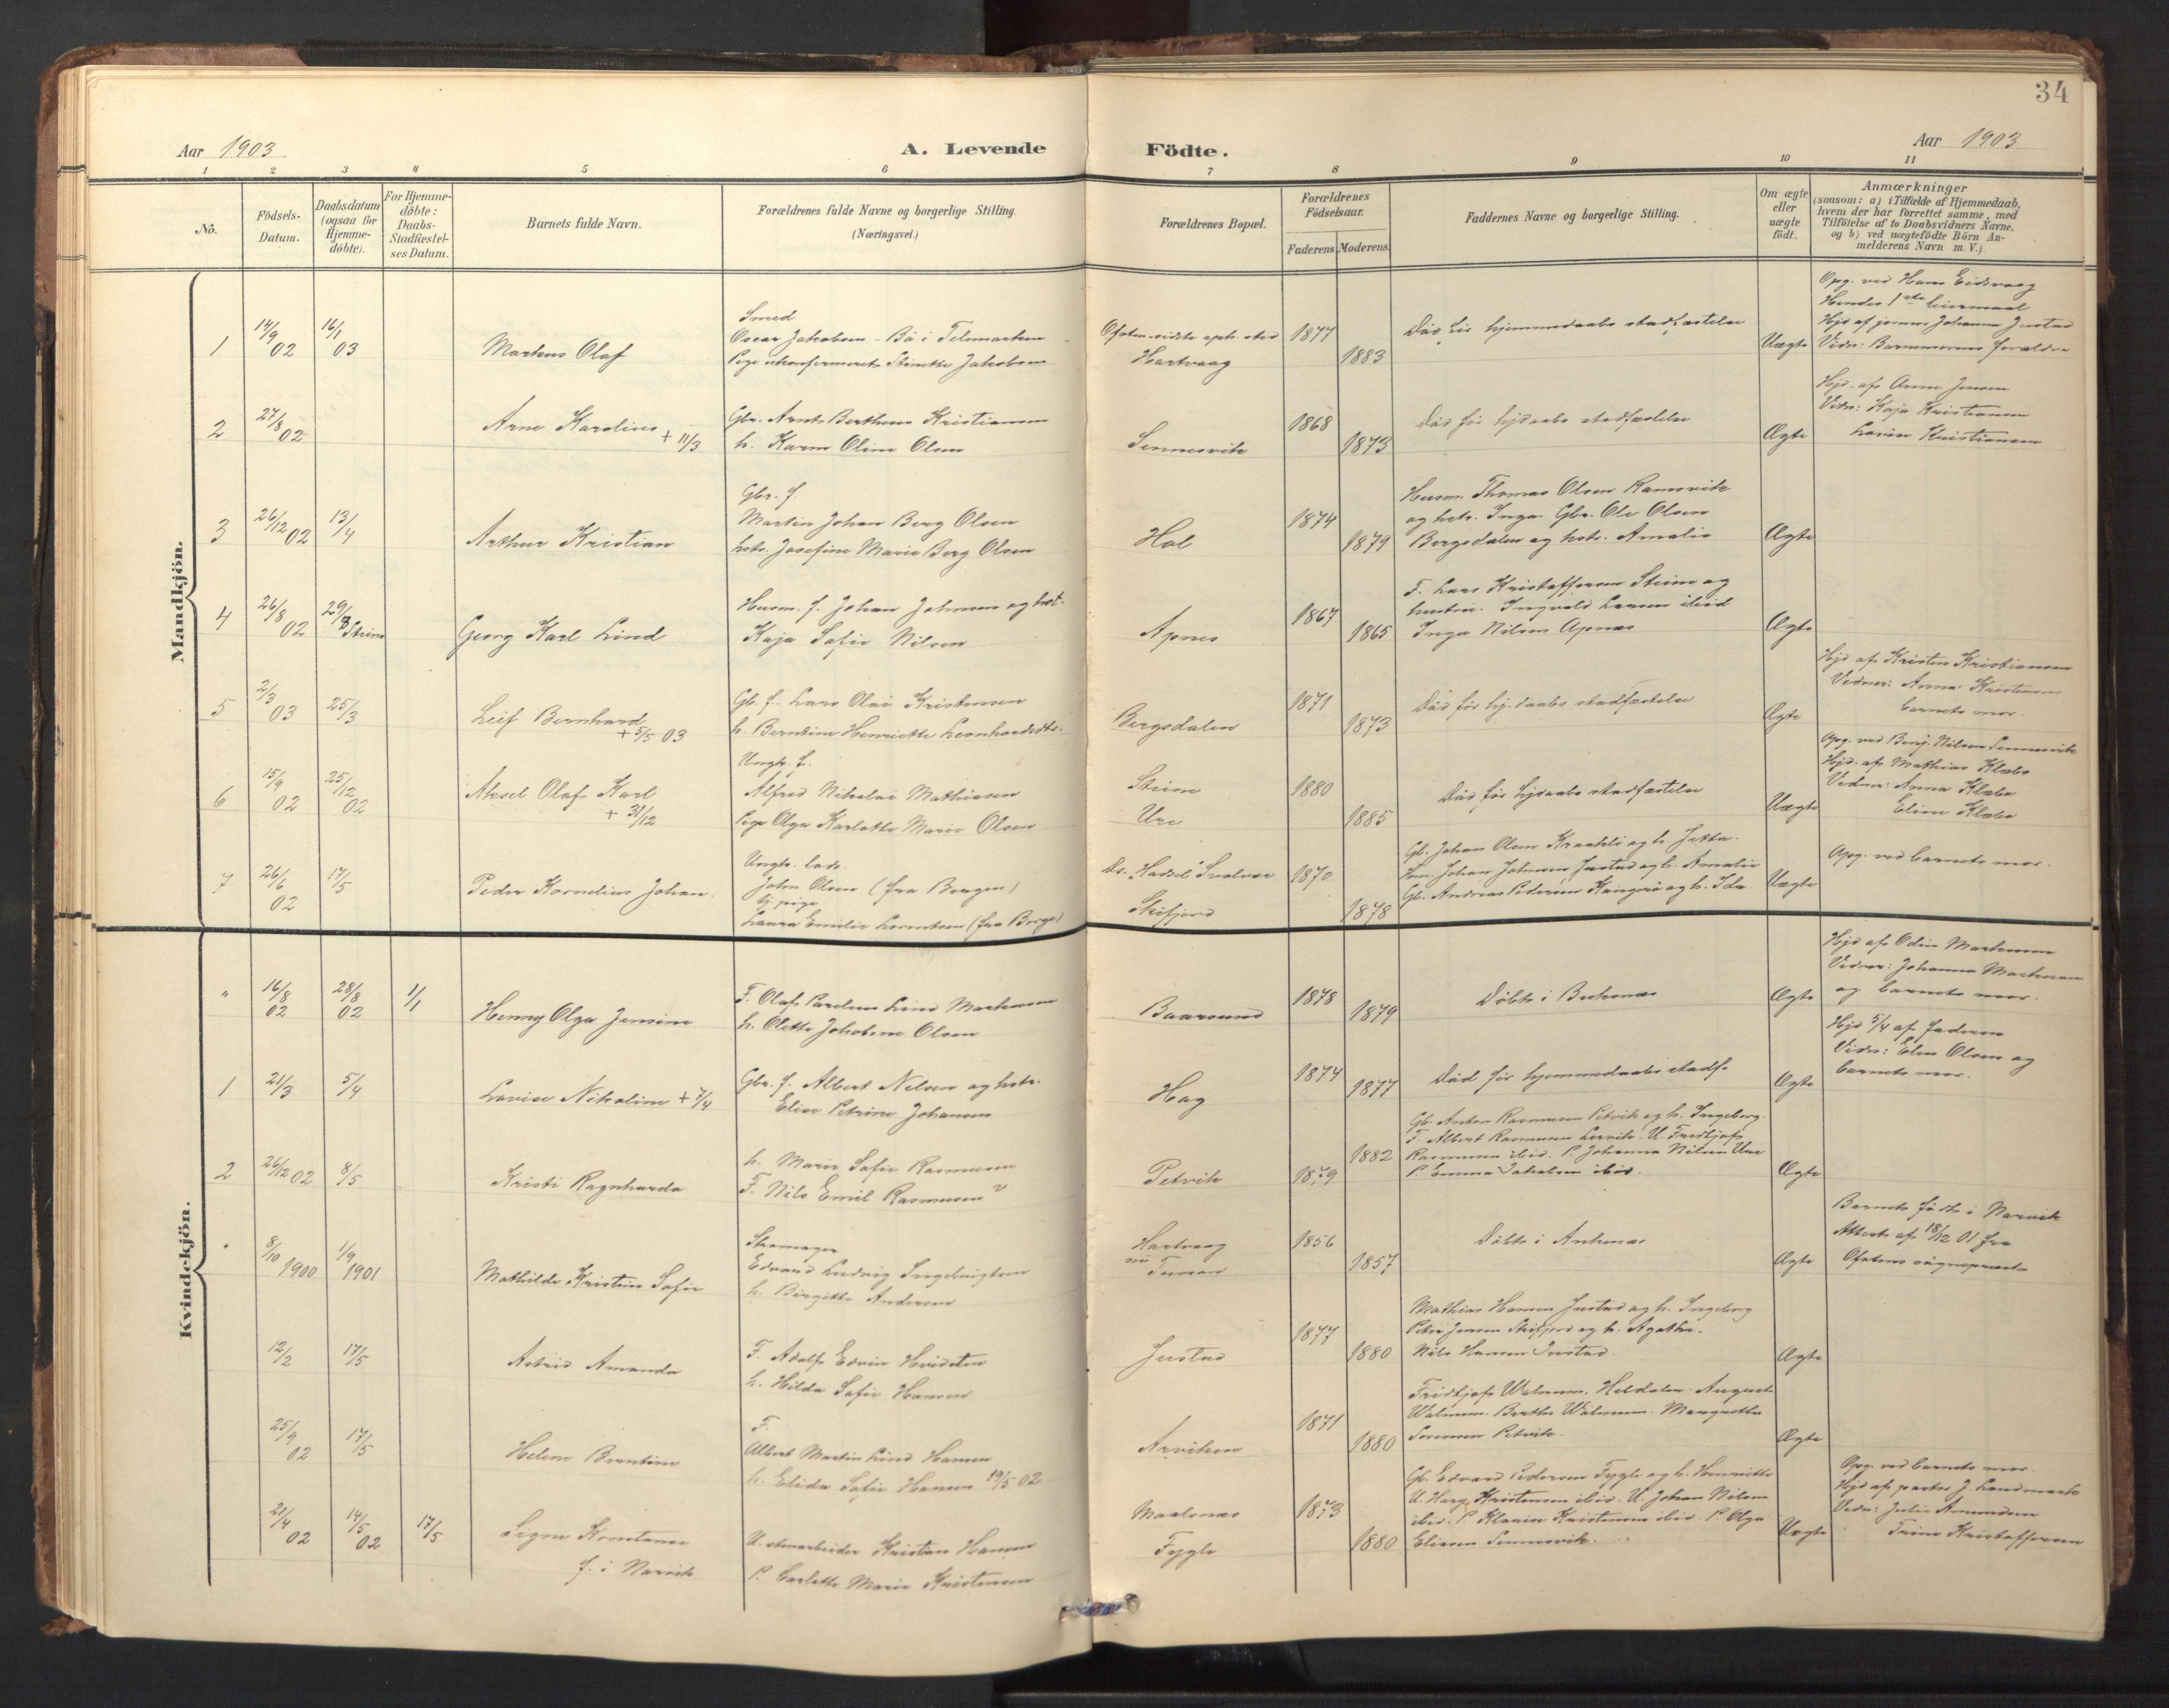 34
Aar 1903
A. Levende
Födte.
Aar 1903
1 2 3 4 5 6 7 8 9 10 11
No.
Födsels-Datum.
Daabsdatum (ogsaa for Hjemme-döbte).
For Hjemme-döbte: Daabs-Stadfæstel-ses Datum.
Barnets fulde Navn.
Forældrenes fulde Navne og borgerlige Stilling. (Næringsvei.)
Forældrenes Bopæl.
Forældrenes Födselsaar.
Faderens Moderens
Faddernes Navne og borgerlige Stilling.
Om ægte eller uægte födt.
Anmærkninger
(saasom: a) i Tilfælde af Hjemmedaab, hvem der har forrettet samme, med Tilföielse af to Daabsvidners Navne, og b) ved uægtefödte Börn An-melderens Navn m. V.)
Mandkjön.
1 14/9 02 16/1 03
Markus Olaf
Smed
Oscar Jakobsen - Bö i Telemarken
Pige ukonfirmeret Stinette Jakobsen
Ofoten sidste oph. sted
Hartvaag
1877 1883
Död för hjemmedaabs stadfæstelse
Uægte
Opg. ved Hans Eidsvaag
Hendes 1ste leiermaal
Hjd af jomfr Johanna Justad
Vidn: Barnemorens forældre
2 27/8 02
Arne Karolius + 11/3
Gbr. Arnt Bertheus Kristiansen
h. Karen Oline Olsen
Sennesvik
1868 1873
Död för hjdaabs stadfæstelse
Ægte
Hjd. af Anne Jensen
Vidn: Kaja Kristiansen
Lovise Kristiansen
3 26/12 02 13/4
Arthur Kristian
Gbr. f.
Martin Johan Berg Olsen
hstr. Josefine Marie Berg Olsen
Hol
1874 1879
Husm. Thomas Olsen Ramsvik
og hstr. Inga. Gbr. Ole Olsen
Bergsdalen og hstr. Amalie
Ægte
4 26/8 02 29/3 Strine
Georg Karl Lind
Husm. f. Johan Johnsen og hst.
Kaja Sofie Nilsen
Apnes
1867 1865
F. Lars Kristoffersen Steine og
hustru. Ingvald Larsen ibid
Inga Nilsen Apnes
Ægte
5 2/3 03 25/3
Leif Bernhard
+ 5/5 03
Gb. f. Lars Olai Kristensen
h. Berntine Henriette Leonhardsdtr.
Bergsdalen
1871 1873
Död för hj.daabs stadfæstelse
Ægte
Hjd af Kristen Kristiansen
Vidner: Anna Kristensen
barnets mor.
6 15/9 02 25/12 02
Aksel Olaf Karl
+ 31/12
Ungk. f.
Alfred Nikolai Mathisen
Pige Olga Karlotte Marie Olsen
Steine
Ure
1880 1885
Död för hjdaabs stadfæstelse
Uægte
Opg. ved Benj. Nilsen Sennesvik
Hjd. af Mathias Klæbo
Vidner: Anna Klæbo
Eline Klæbo
7 26/6 02 17/5
Peder Kornelius Johan
Ungk. lods.
John Olsen (fra Bergen)
tj. pige
Laura Emilie Lorentsen (fra Borge)
Ds. "Hadsel" Svolvær
Skifjord
1870 1878
Gb. Johan Olsen og h. Jetta.
Hm. Johan Johnsen Justad og h. Amalie
Gb. Andreas Pedersen og h. Ida.
Uægte
Opg. ved barnets mor.
Kvindekjön.
" 16/8 02 28/8 02 1/1
Henny Olga Jensine
F. Olaf Lind Martinsen
h. Olette Jakobine Olsen
Baarsund
1878 1879
Döbt i Buksnes
Ægte
Hjd af Odin Martinsen
Vidner: Johanna Martinsen
og barnets mor.
1 21/3 5/4
Lovise Nikoline + 7/4
Gbr. f. Albert Nilsen og hstr.
Elise Petrine Johansen
Hag
1874 1877
Död för hjemmedaabs stadf.
Ægte
Hjd 5/4 af faderen
Vidn: Elen Olsen og
barnets mor.
2 26/12 02 8/5
Kristi Ragnharda
h. Marie Sofie Rasmussen
F. Nils Emil Rasmussen
Petvik
1882 1879
Gb. Anton Rasmussen Petvik og h. Ingeborg.
F. Albert Rasmussen Lervik. U. Fredtjof
Rasmussen ibid. P. Johanna Nilsen Ure
P. Emma Jakobsen ibid.
Ægte
" 8/10 1900 1/9 1901
Mathilde Kristine Sofie
Skomager
Edvard Ludvig Ingebrigtsen
h. Birgitte Andersen
Hartvaag
nu
1856 1857
Döbt i Ankenes
Ægte
Barnet födt i Narvik
Attest af 18/12 01 fra
Ofotens sogneprest
12/2 17/5
Astrid Amanda
F. Adolf Edvin Hvidsten
h. Hilda Sofie Hansen
Justad
1877 1880
Mathias Hansen Justad og h. Ingeborg
Peter Jensen Skifjord og h. Agathe.
Nils Hansen Justad.
Ægte
25/9 02 17/5
Helene Berntine
F.
Albert Martin Lind Hansen
h. Elida Sofie Hansen 19/5 02
Arviken
1871 1880
Fridtjof Walmum, Heldalen. August
Walmum. Berthe Walmum. Margrethe
Sorensen Petvik.
Ægte
21/4 02 14/5 02 17/5
Signe Konstanse
f. i Narvik
U. stenarbeider Kristian Hansen
P. Carlotte Marie Kristensen
Maalsnes
Fygle
1873 1880
Gb. Edvard Pedersen Fygle og h. Henriette
U. Harg Kristensen ibid. U. Johan Nilsen
ibid. P. Klarise Kristensen ibid. P. Olga
Eliasen Sennesvik.
Uægte
Opg. ved barnets mor.
Hjd af pastor J. Landmark
Vidn: Julie Amundsen
Trine Kristoffersen